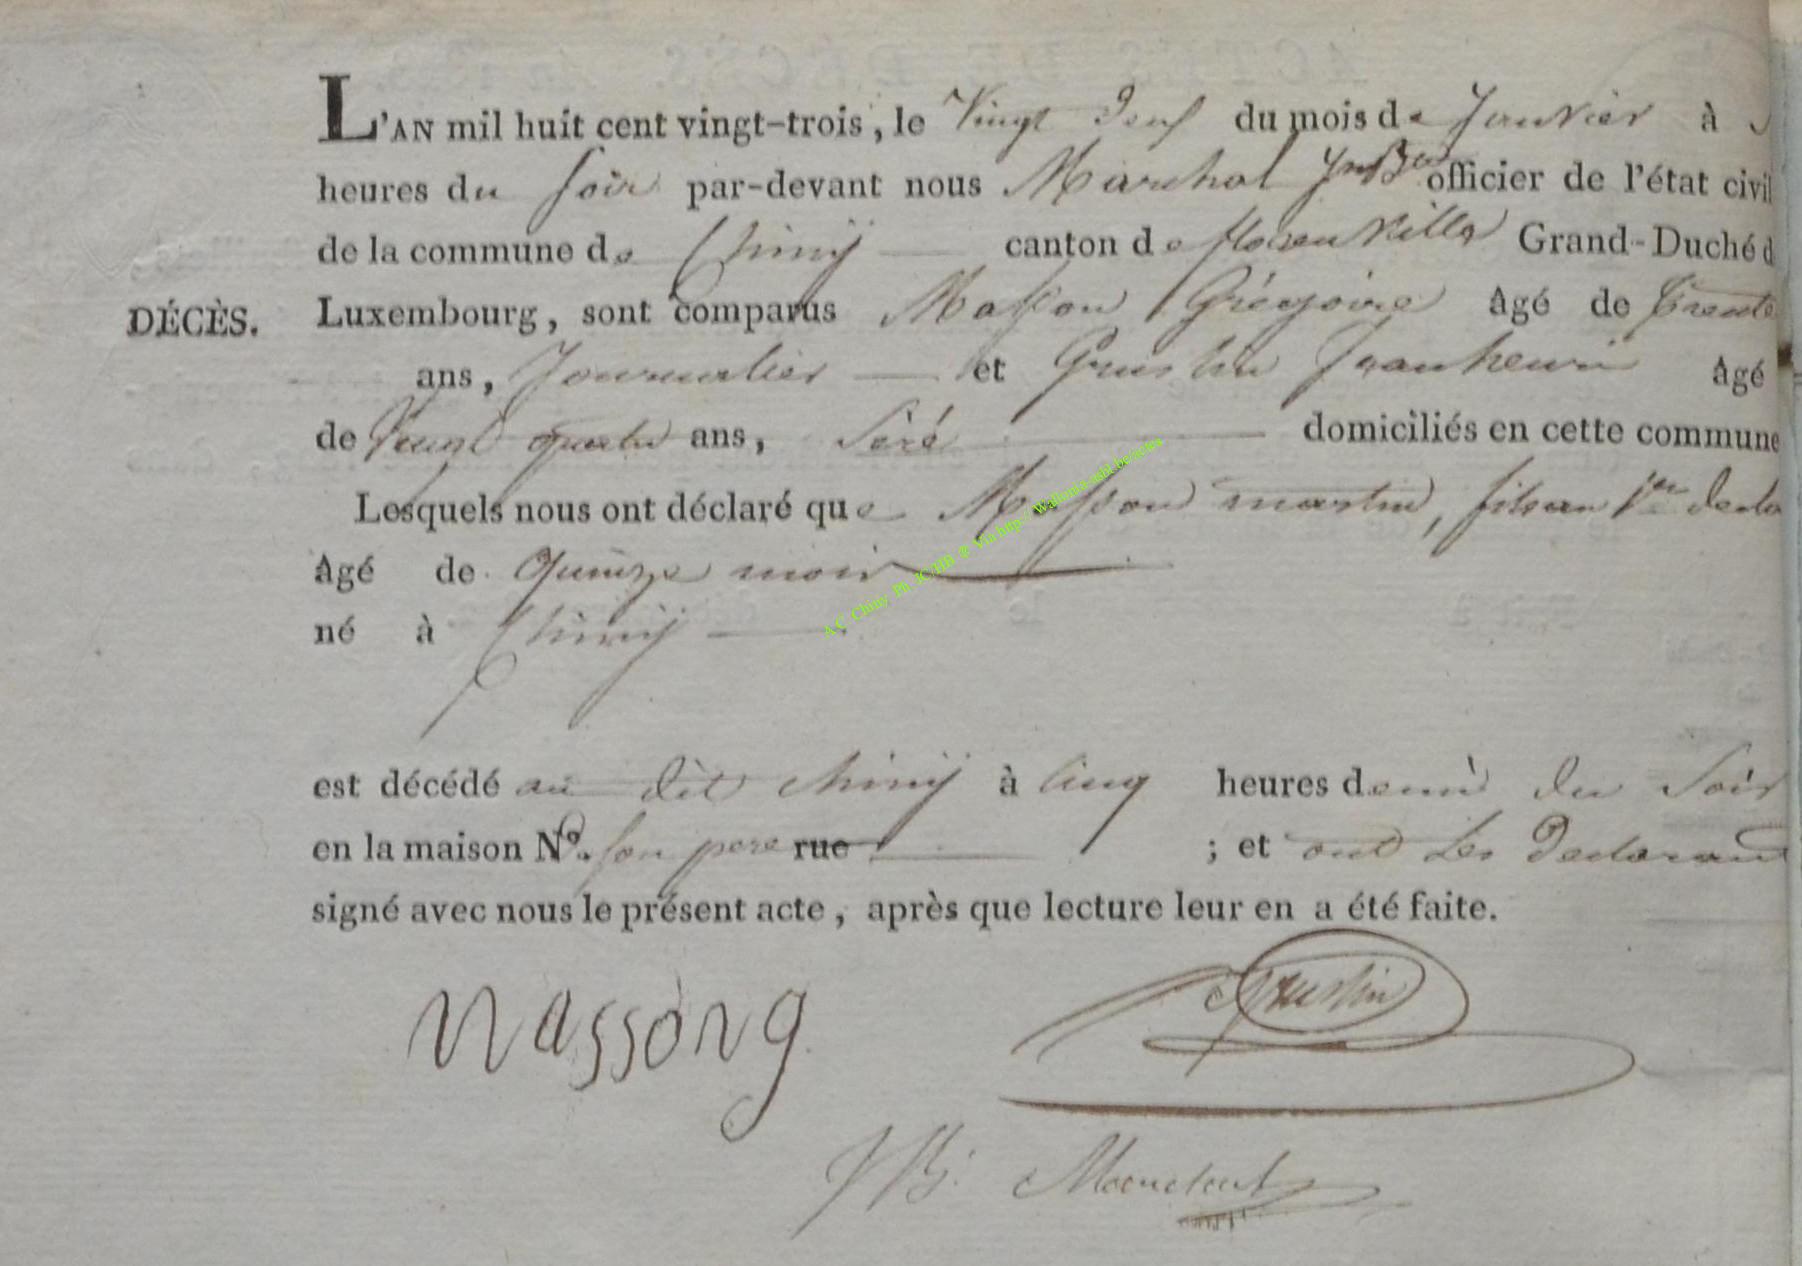 L'AN mil huit cent vingt-trois, le Vingt Deuf du mois de Janvier à
heures du Soir par-devant nous Marchal Jn Bte officier de l'état civil
de la commune de Chinÿ canton de florenville Grand-Duché d
DÉCÈS. Luxembourg, sont comparus Masson Grégoire âgé de trente
ans, Journalier et Grustin Jean henri âgé
de Vingt quatre ans, domiciliés en cette commune
Lesquels nous ont déclaré que Masson martin, fils au 1er
âgé de quinze mois
né à Chinÿ
est décédé au dit Chinÿ à Cinq heures demi du Soir
en la maison No. De son pere rue ; et ont Les Declarant
signé avec nous le présent acte, après que lecture leur en a été faite.
Massong
Grustin
JB: Marechal
A C Chiny. Ph. JC/HB @ Via http:// Wallonia-asbl.be/actes